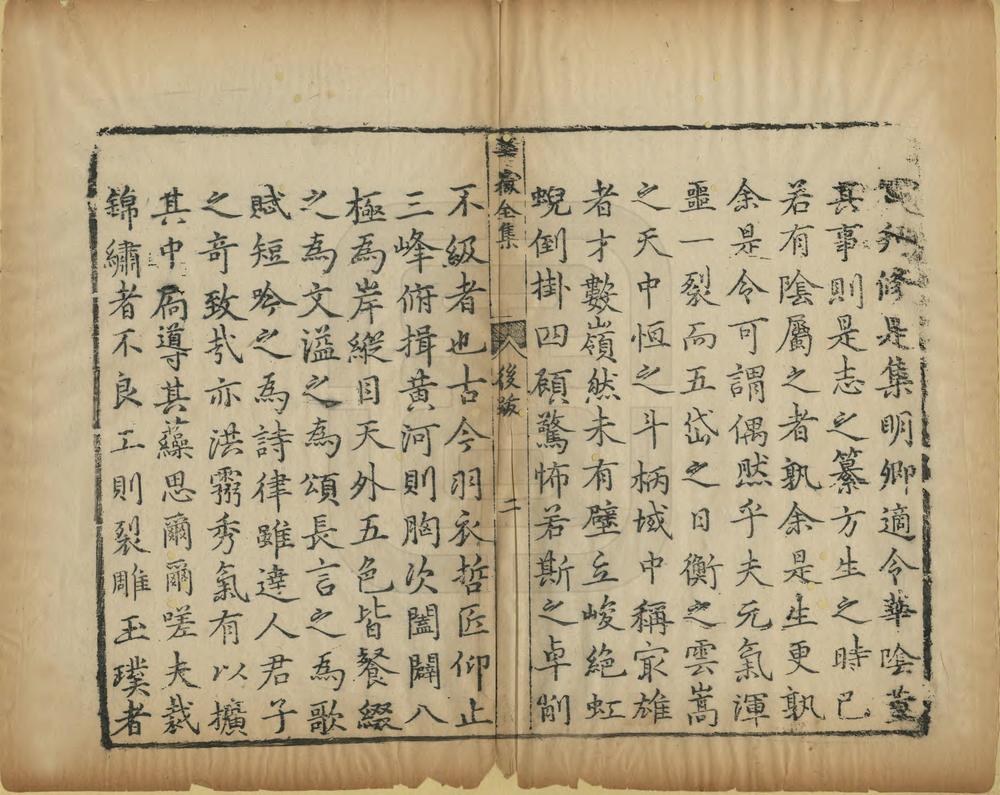 修是集明卿適令華陰董
其事則是志之纂方生之時已
若有陰屬之者孰余是生更孰
余是令可謂偶然乎夫元氣渾
噩一裂而五岱之日衡之雲嵩
之天中恒之斗柄域中稱㝡雄
者才數嶺然未有壁立峻絕虹
蜺倒掛四顧驚怖若斯之卓削
華嶽全集
後跋
二
不級者也古今羽衣哲匠仰止
三峰俯揖黃河則胸次闔闢八
極為岸縱目天外五色皆餐綴
之為文溢之為頌長言之為歌
賦短吟之為詩律雖達人君子
之竒致㦲亦洪靈秀氣有以擴
其中啟導其藻思爾爾嗟夫裁
錦繡者不良工則裂雕玉璞者